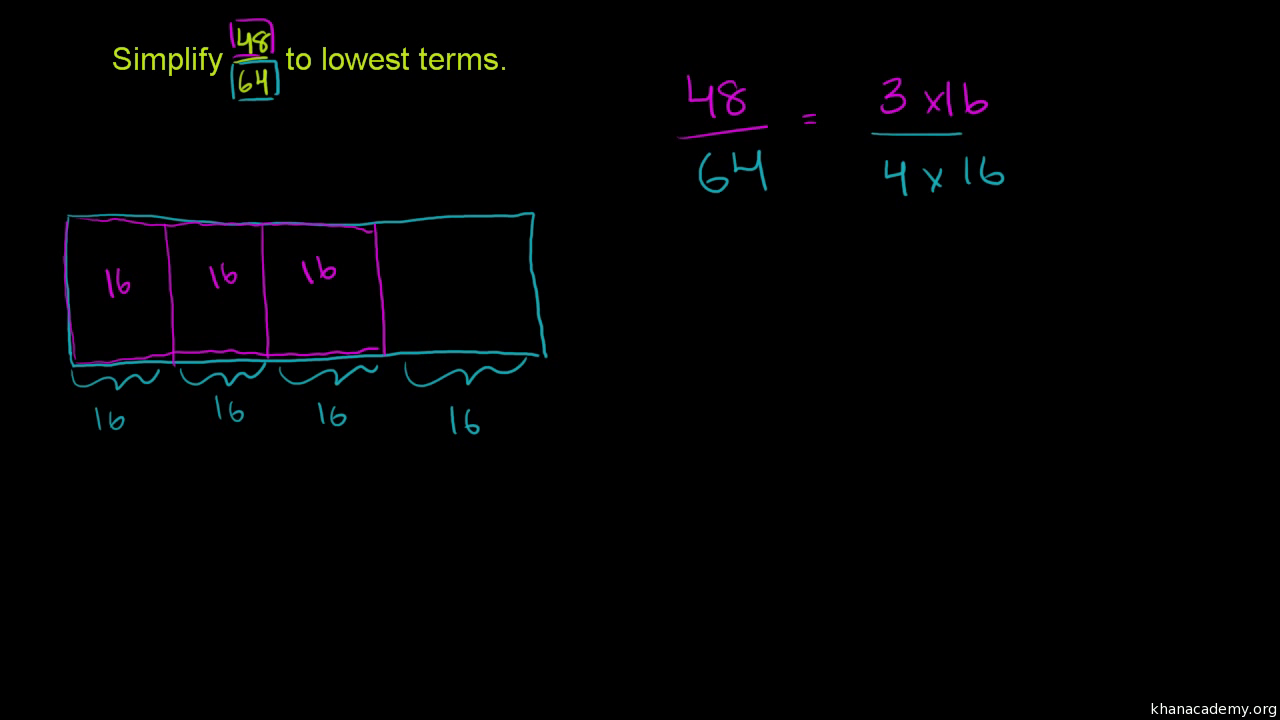 Simplify 48/64 to lowest terms.
48/64 = 3 x16/4 x 16
16 16 16
16 16 16 16
khanacademy.org